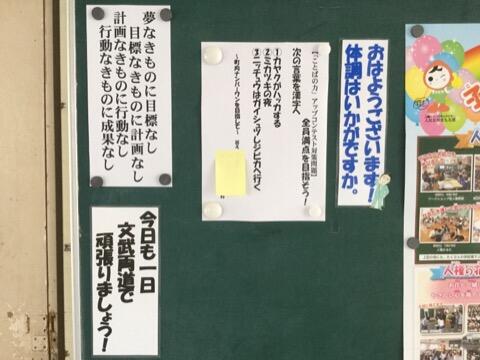 おはようございます!
体調はいかがですか。
【「ことばの力」アップコンテスト対策問題】
全員満点を目指そう!
次の言葉を漢字へ
①カヤクがハッカする
②ミカヅキの夜
③ニッチュウはガイシュツしジビカへ行く
～町内ナンバーワンを目指して～
夢なきものに目標なし
目標なきものに計画なし
計画なきものに行動なし
行動なきものに成果なし
今日も一日
文武両道で
頑張りましょう!